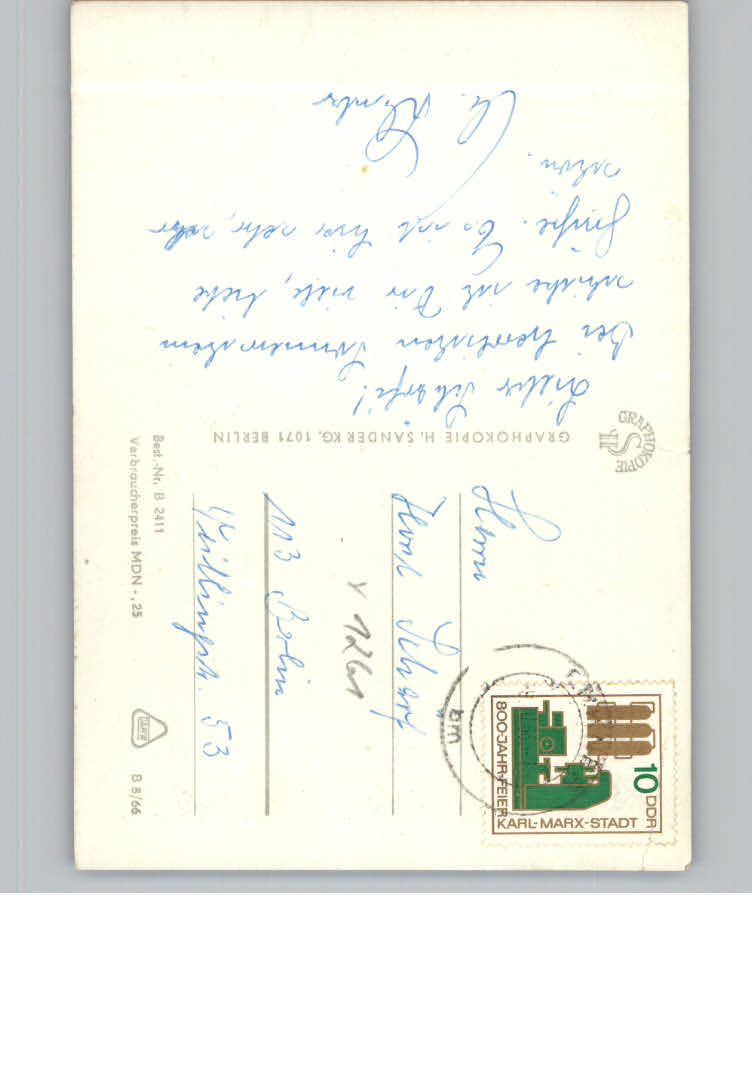 Lieber Scharfi!
Bei herrlichem Sonnenschein
schicke ich Dir viele, liebe
Grüße. Es ist hier sehr, sehr
schön.
GRAPHOKOPIE H. SANDER KG, 1071 BERLIN
GRAPHOKOPIE
HS
Herrn
Horst Scharf
113 Berlin
53
x 1261
Best.-Nr. B 2411
Verbraucherpreis MDN -,25
B 8/66
10 DDR
KARL-MARX-STADT
800-JAHR-FEIER
bm